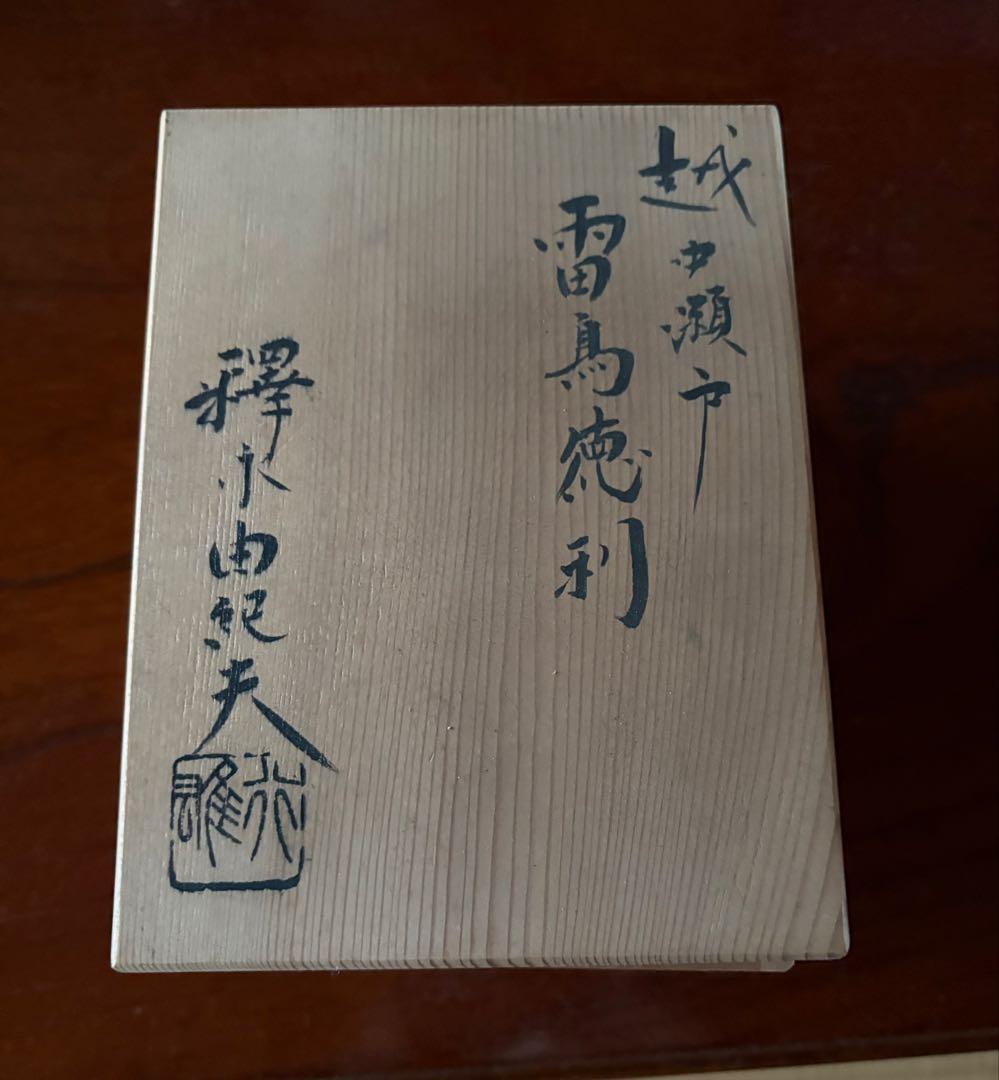 越中瀬戸
雷鳥徳利
釋永由紀夫